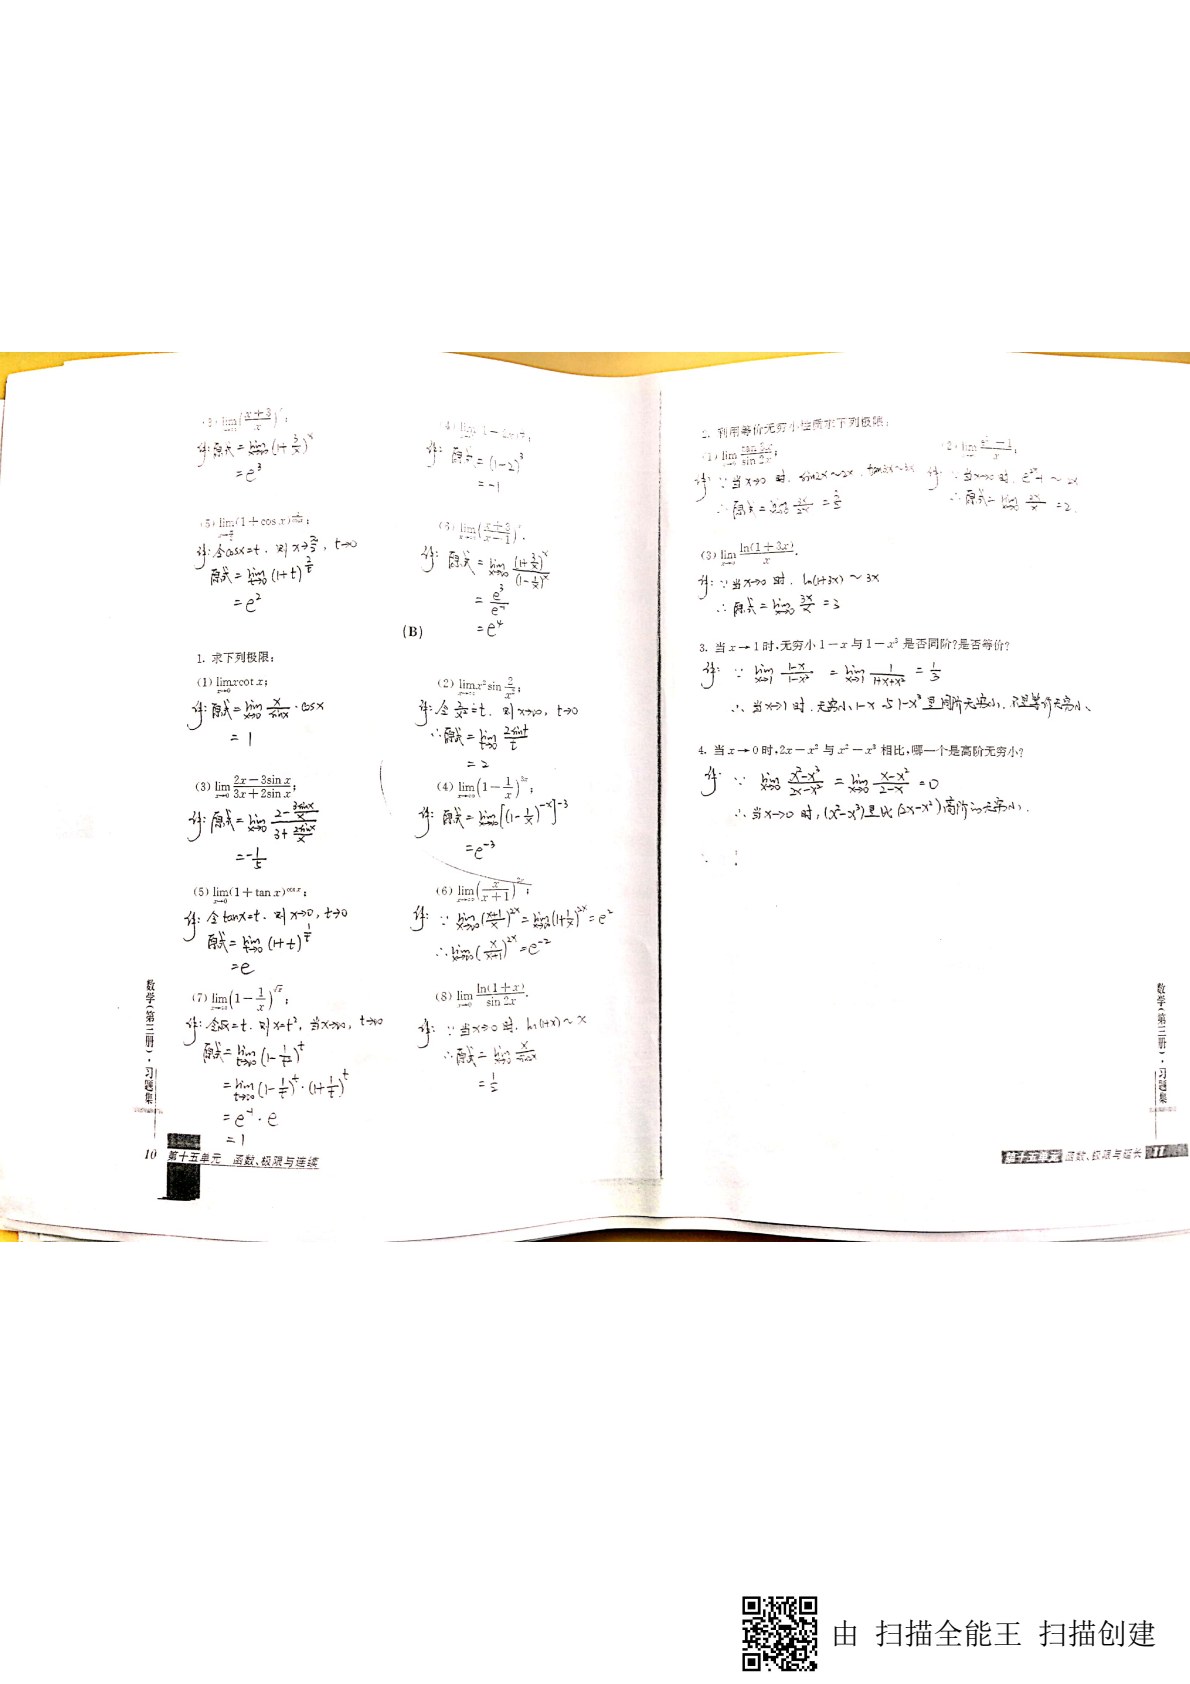 (3) lim(x+3/x)^x;
解:原式=lim x→∞ (1+3/x)^x
=e^3
解: 原式=(1-2)^3
=-1
(5) lim(1+cos x)
解:令cosx=t,则x→π/2,t→0
原式=lim t→0 (1+t)^(2/t)
=e^2
(6) lim(x+3/x-1)^x.
解: 原式=lim x→∞ (1+3/x)^x/(1-1/x)^x
=e^3/e^-1
=e^4
(B)
1. 求下列极限:
(1) lim x→0 xcot x;
解:原式=lim x→0 x/sinx·cosx
=1
(2) lim x→∞ x²sin 2/x²;
解:令1/x²=t,则x→∞,t→0
∴原式=lim t→0 2sint/t
=2
(3) lim x→0 2x-3sin x/3x+2sin x;
解:原式=lim x→0 (2-3sinx/x)/(3+2sinx/x)
=-1/5
(4) lim x→∞(1-1/x)^3x;
解:原式=lim x→∞[(1-1/x)^-x]^-3
=e^-3
(5) lim x→0(1+tan x)^cot x;
解:令tanx=t,则x→0,t→0
原式=lim t→0 (1+t)^(1/t)
=e
(6) lim x→∞(x/x+1)^2x;
解:∵lim x→∞(x+1/x)^2x=lim x→∞(1+1/x)^2x=e^2
∴lim x→∞(x/x+1)^2x=e^-2
(7) lim x→∞(1-1/x)^√x;
解:令√x=t,则x=t²,当x→∞,t→∞
原式=lim t→∞(1-1/t²)^t
=lim t→∞(1-1/t)^t·(1+1/t)^t
=e^-1·e
=1
(8) lim x→0 ln(1+x)/sin 2x.
解:∵当x→0时,ln(1+x)~x
∴原式=lim x→0 x/sin2x
=1/2
数学(第三册)·习题集
10 第十五单元 函数、极限与连续
2. 利用等价无穷小性质求下列极限:
(1) lim tan 3x/sin 2x;
解:∵当x→0时,sin2x~2x,tan3x~3x
∴原式=lim x→0 3x/2x=3/2
解:∵当x→0时,e^2x-1~2x
∴原式=lim x→0 2x/x=2.
(3) lim x→0 ln(1+3x)/x.
解:∵当x→0时,ln(1+3x)~3x
∴原式=lim x→0 3x/x=3
3. 当x→1时,无穷小1-x与1-x³是否同阶?是否等价?
解:∵lim x→1 1-x/1-x³=lim x→1 1/1+x+x²=1/3
∴当x→1时,无穷小1-x与1-x³是同阶无穷小,不是等价无穷小、
4. 当x→0时,2x-x²与x²-x³相比,哪一个是高阶无穷小?
解:∵lim x→0 x²-x³/2x-x²=lim x→0 x-x²/2-x=0
∴当x→0时,(x²-x³)是比(2x-x²)高阶的无穷小.
数学(第三册)·习题集
第十五单元 函数、极限与 11
由 扫描全能王 扫描创建